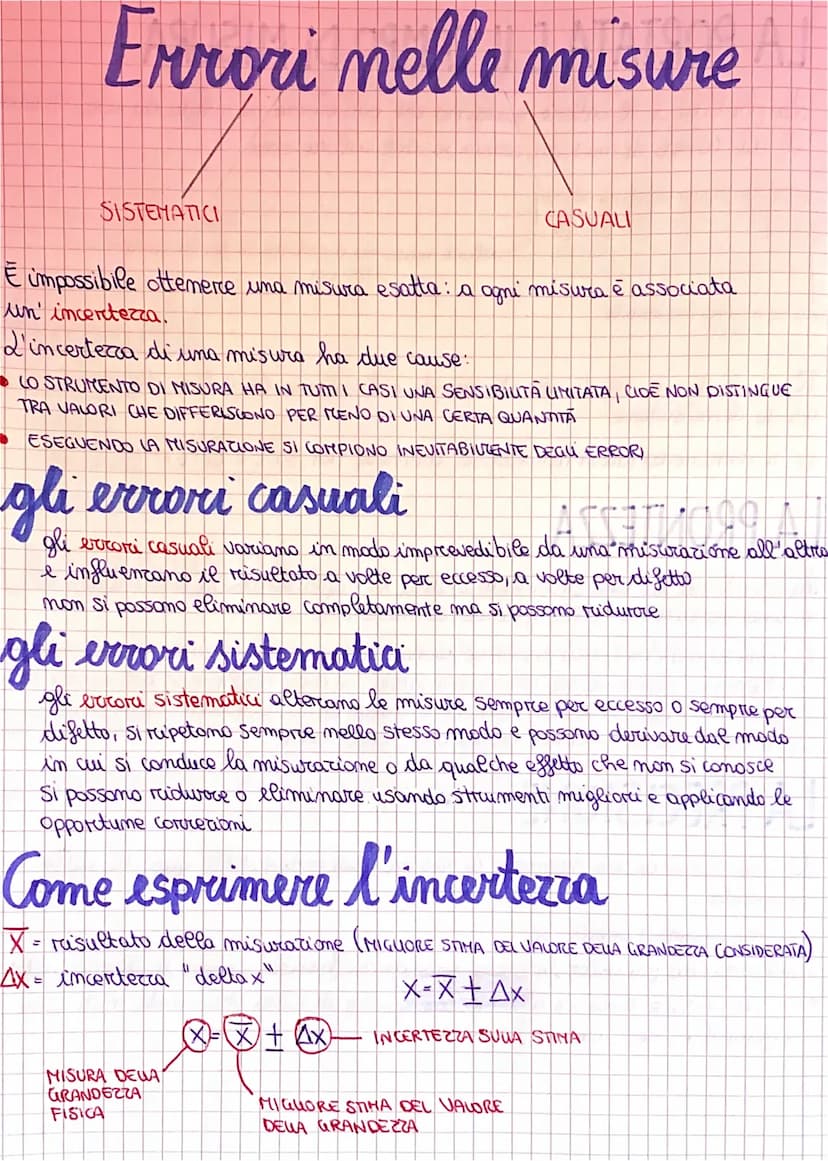 Errori nelle misure
SISTEMATICI
CASUALI
È impossibile ottenere una misura esatta: a ogni misura è associata
un'incertezza.
L'incertezza di una misura ha due cause:
• LO STRUMENTO DI MISURA HA IN TUTTI I CASI UNA SENSIBILITÀ LIMITATA, CIOÈ NON DISTINGUE
TRA VALORI CHE DIFFERISCONO PER MENO DI UNA CERTA QUANTITÀ
• ESEGUENDO LA MISURAZIONE SI COMPIONO INEVITABILMENTE DEGLI ERRORI
gli errori casuali
gli errori casuali variano in modo imprevedibile da una misurazione all'altra
e influenzano il risultato a volte per eccesso, a volte per difetto
non si possono eliminare completamente ma si possono ridurre
gli errori sistematici
gli errori sistematici alterano le misure sempre per eccesso o sempre per
difetto, si ripetono sempre nello stesso modo e possono derivare dal modo
in cui si conduce la misurazione o da qualche effetto che non si conosce
Si possono ridurre o eliminare usando strumenti migliori e applicando le
opportune correzioni
Come esprimere l'incertezza
X̅ = risultato della misurazione (MIGLIORE STIMA DEL VALORE DELLA GRANDEZZA CONSIDERATA)
Δx = incertezza "delta x"
X = X̅ ± Δx
X = X̅ ± Δx
INCERTEZZA SULLA STIMA
MISURA DELLA
GRANDEZZA
FISICA
MIGLIORE STIMA DEL VALORE
DELLA GRANDEZZA